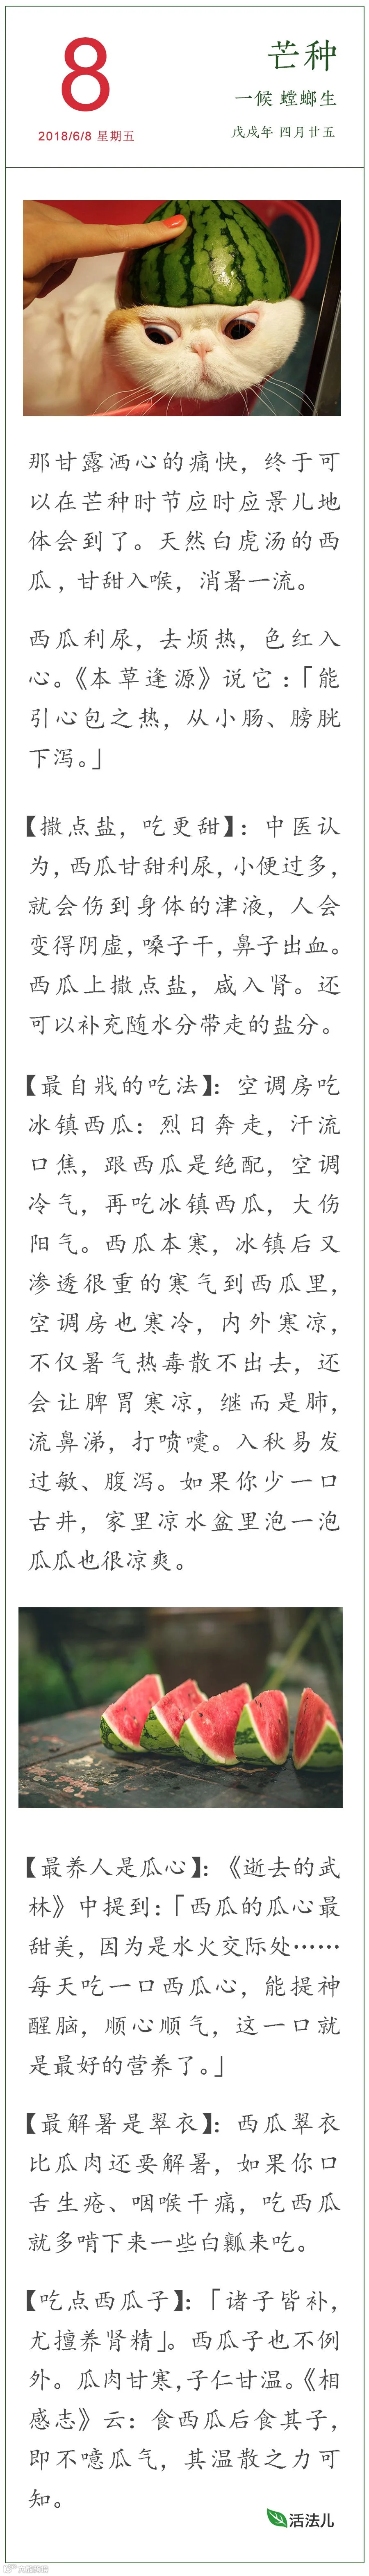 8
2018/6/8 星期五
芒种
一候 螳螂生
戊戌年 四月廿五
那甘露洒心的痛快，终于可
以在芒种时节应时应景儿地
体会到了。天然白虎汤的西
瓜，甘甜入喉，消暑一流。
西瓜利尿，去烦热，色红入
心。《本草逢源》说它：「能
引心包之热，从小肠、膀胱
下泻。」
【撒点盐，吃更甜】：中医认
为，西瓜甘甜利尿，小便过多，
就会伤到身体的津液，人会
变得阴虚，嗓子干，鼻子出血。
西瓜上撒点盐，咸入肾。还
可以补充随水分带走的盐分。
【最自戕的吃法】：空调房吃
冰镇西瓜：烈日奔走，汗流
口焦，跟西瓜是绝配，空调
冷气，再吃冰镇西瓜，大伤
阳气。西瓜本寒，冰镇后又
渗透很重的寒气到西瓜里，
空调房也寒冷，内外寒凉，
不仅暑气热毒散不出去，还
会让脾胃寒凉，继而是肺，
流鼻涕，打喷嚏。入秋易发
过敏、腹泻。如果你少一口
古井，家里凉水盆里泡一泡
瓜瓜也很凉爽。
【最养人是瓜心】：《逝去的武
林》中提到：「西瓜的瓜心最
甜美，因为是水火交际处……
每天吃一口西瓜心，能提神
醒脑，顺心顺气，这一口就
是最好的营养了。」
【最解暑是翠衣】：西瓜翠衣
比瓜肉还要解暑，如果你口
舌生疮、咽喉干痛，吃西瓜
就多啃下来一些白瓤来吃。
【吃点西瓜子】：「诸子皆补，
尤擅养肾精」。西瓜子也不例
外。瓜肉甘寒，子仁甘温。《相
感志》云：食西瓜后食其子，
即不噫瓜气，其温散之力可
知。
活法儿